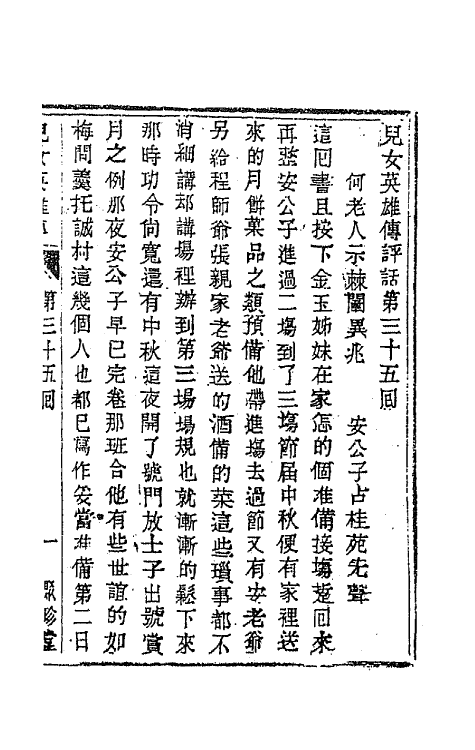 兒女英雄傳評話第三十五回
何老人示棘闈異兆　安公子占桂苑先聲
這回書且按下金玉姊妹在家怎的個准備接塲踅回來
再整安公子進過二塲到了三塲節届中秋便有家裡送
來的月餅菓品之類預備他帶進塲去過節又有安老爺
另給程師爺張親家老爺送的酒備的菜這些瑣事都不
消細講却講場裡辦到第三場場規也就漸漸的鬆下來
那時功令尙寬還有中秋這夜開了號門放士子出號賞
月之例那夜安公子早已完卷那班合他有些世誼的如
梅問羹托誠村這幾個人也都已寫作妥當准備第二日
兒女英雄傳
第三十五回
一
聚珍堂